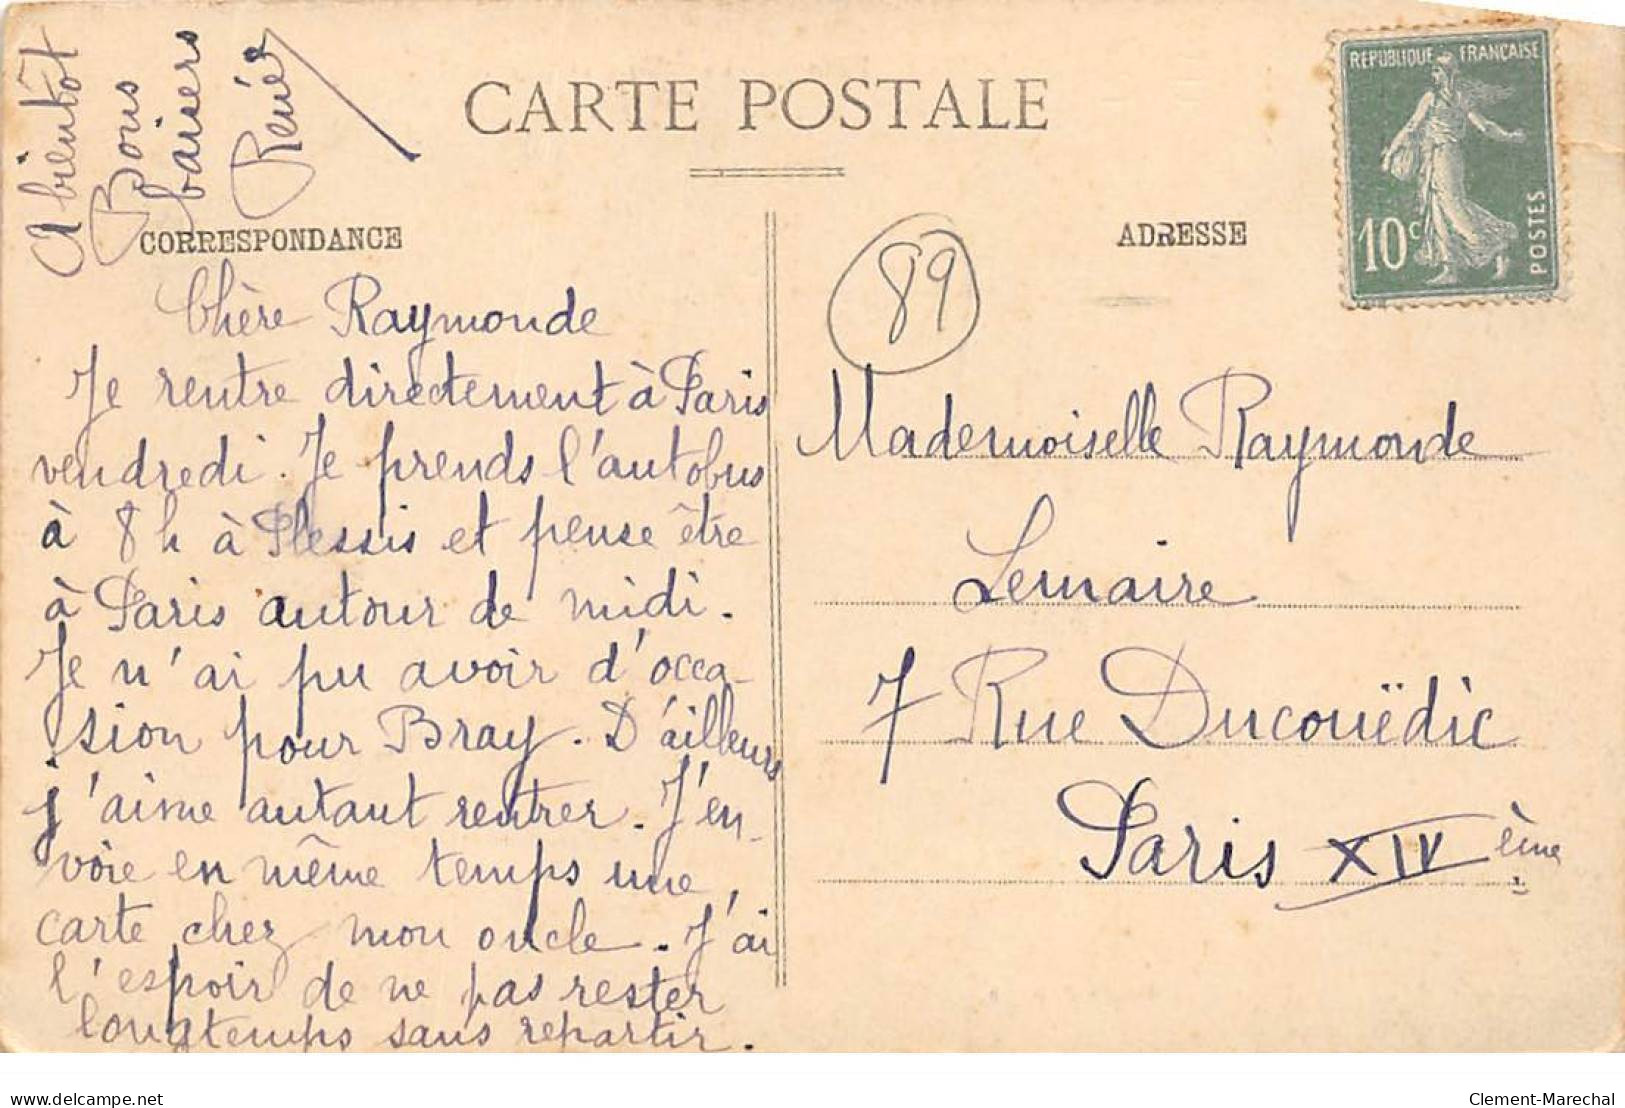 A bientôt
Bons
baisers
René
CARTE POSTALE
CORRESPONDANCE
Chère Raymonde
Je rentre directement à Paris
vendredi. Je prends l'autobus
à 8 h à Plessis et pense être
à Paris autour de midi.
Je n'ai pu avoir d'occa-
sion pour Bray. D'ailleurs
j'aime autant rentrer. J'en-
voie en même temps une
carte chez mon oncle. J'ai
l'espoir de ne pas rester
longtemps sans repartir.
REPUBLIQUE FRANCAISE
10c
POSTES
ADRESSE
89
Mademoiselle Raymonde
Lemaire
7 Rue Ducouëdic
Paris XIV ème
www.delcampe.net
Clement-Marechal